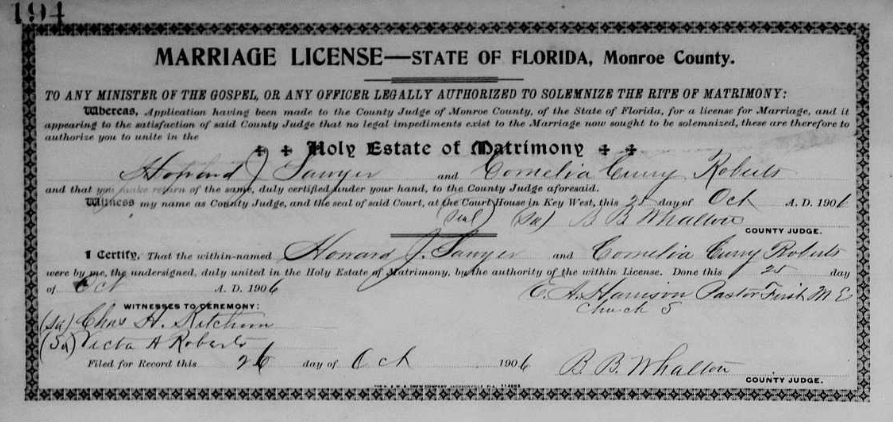 194
MARRIAGE LICENSE—STATE OF FLORIDA, Monroe County.
TO ANY MINISTER OF THE GOSPEL, OR ANY OFFICER LEGALLY AUTHORIZED TO SOLEMNIZE THE RITE OF MATRIMONY:
Whereas, Application having been made to the County Judge of Monroe County, of the State of Florida, for a license for Marriage, and it
appearing to the satisfaction of said County Judge that no legal impediments exist to the Marriage now sought to be solemnized, these are therefore to
authorize you to unite in the
Holy Estate of Matrimony
Howard J. Sawyer and Cornelia Curry Roberts
and that you make return of the same, duly certified under your hand, to the County Judge aforesaid.
Witness my name as County Judge, and the seal of said Court, at the Court House in Key West, this 25 day of Oct A. D. 1906
(seal) (Sd) B B Whalton
COUNTY JUDGE.
I Certify, That the within-named Howard J. Sawyer and Cornelia Curry Roberts
were by me, the undersigned, duly united in the Holy Estate of Matrimony, by the authority of the within License. Done this 25 day
of Oct A. D. 1906
E. A. Harrison Pastor First M E
Church S
WITNESSES TO CEREMONY:
(Sd) Chas H. Ketchum
(Sd) A Roberts
Filed for Record this 26 day of Oct 1906 B. B. Whalton
COUNTY JUDGE.